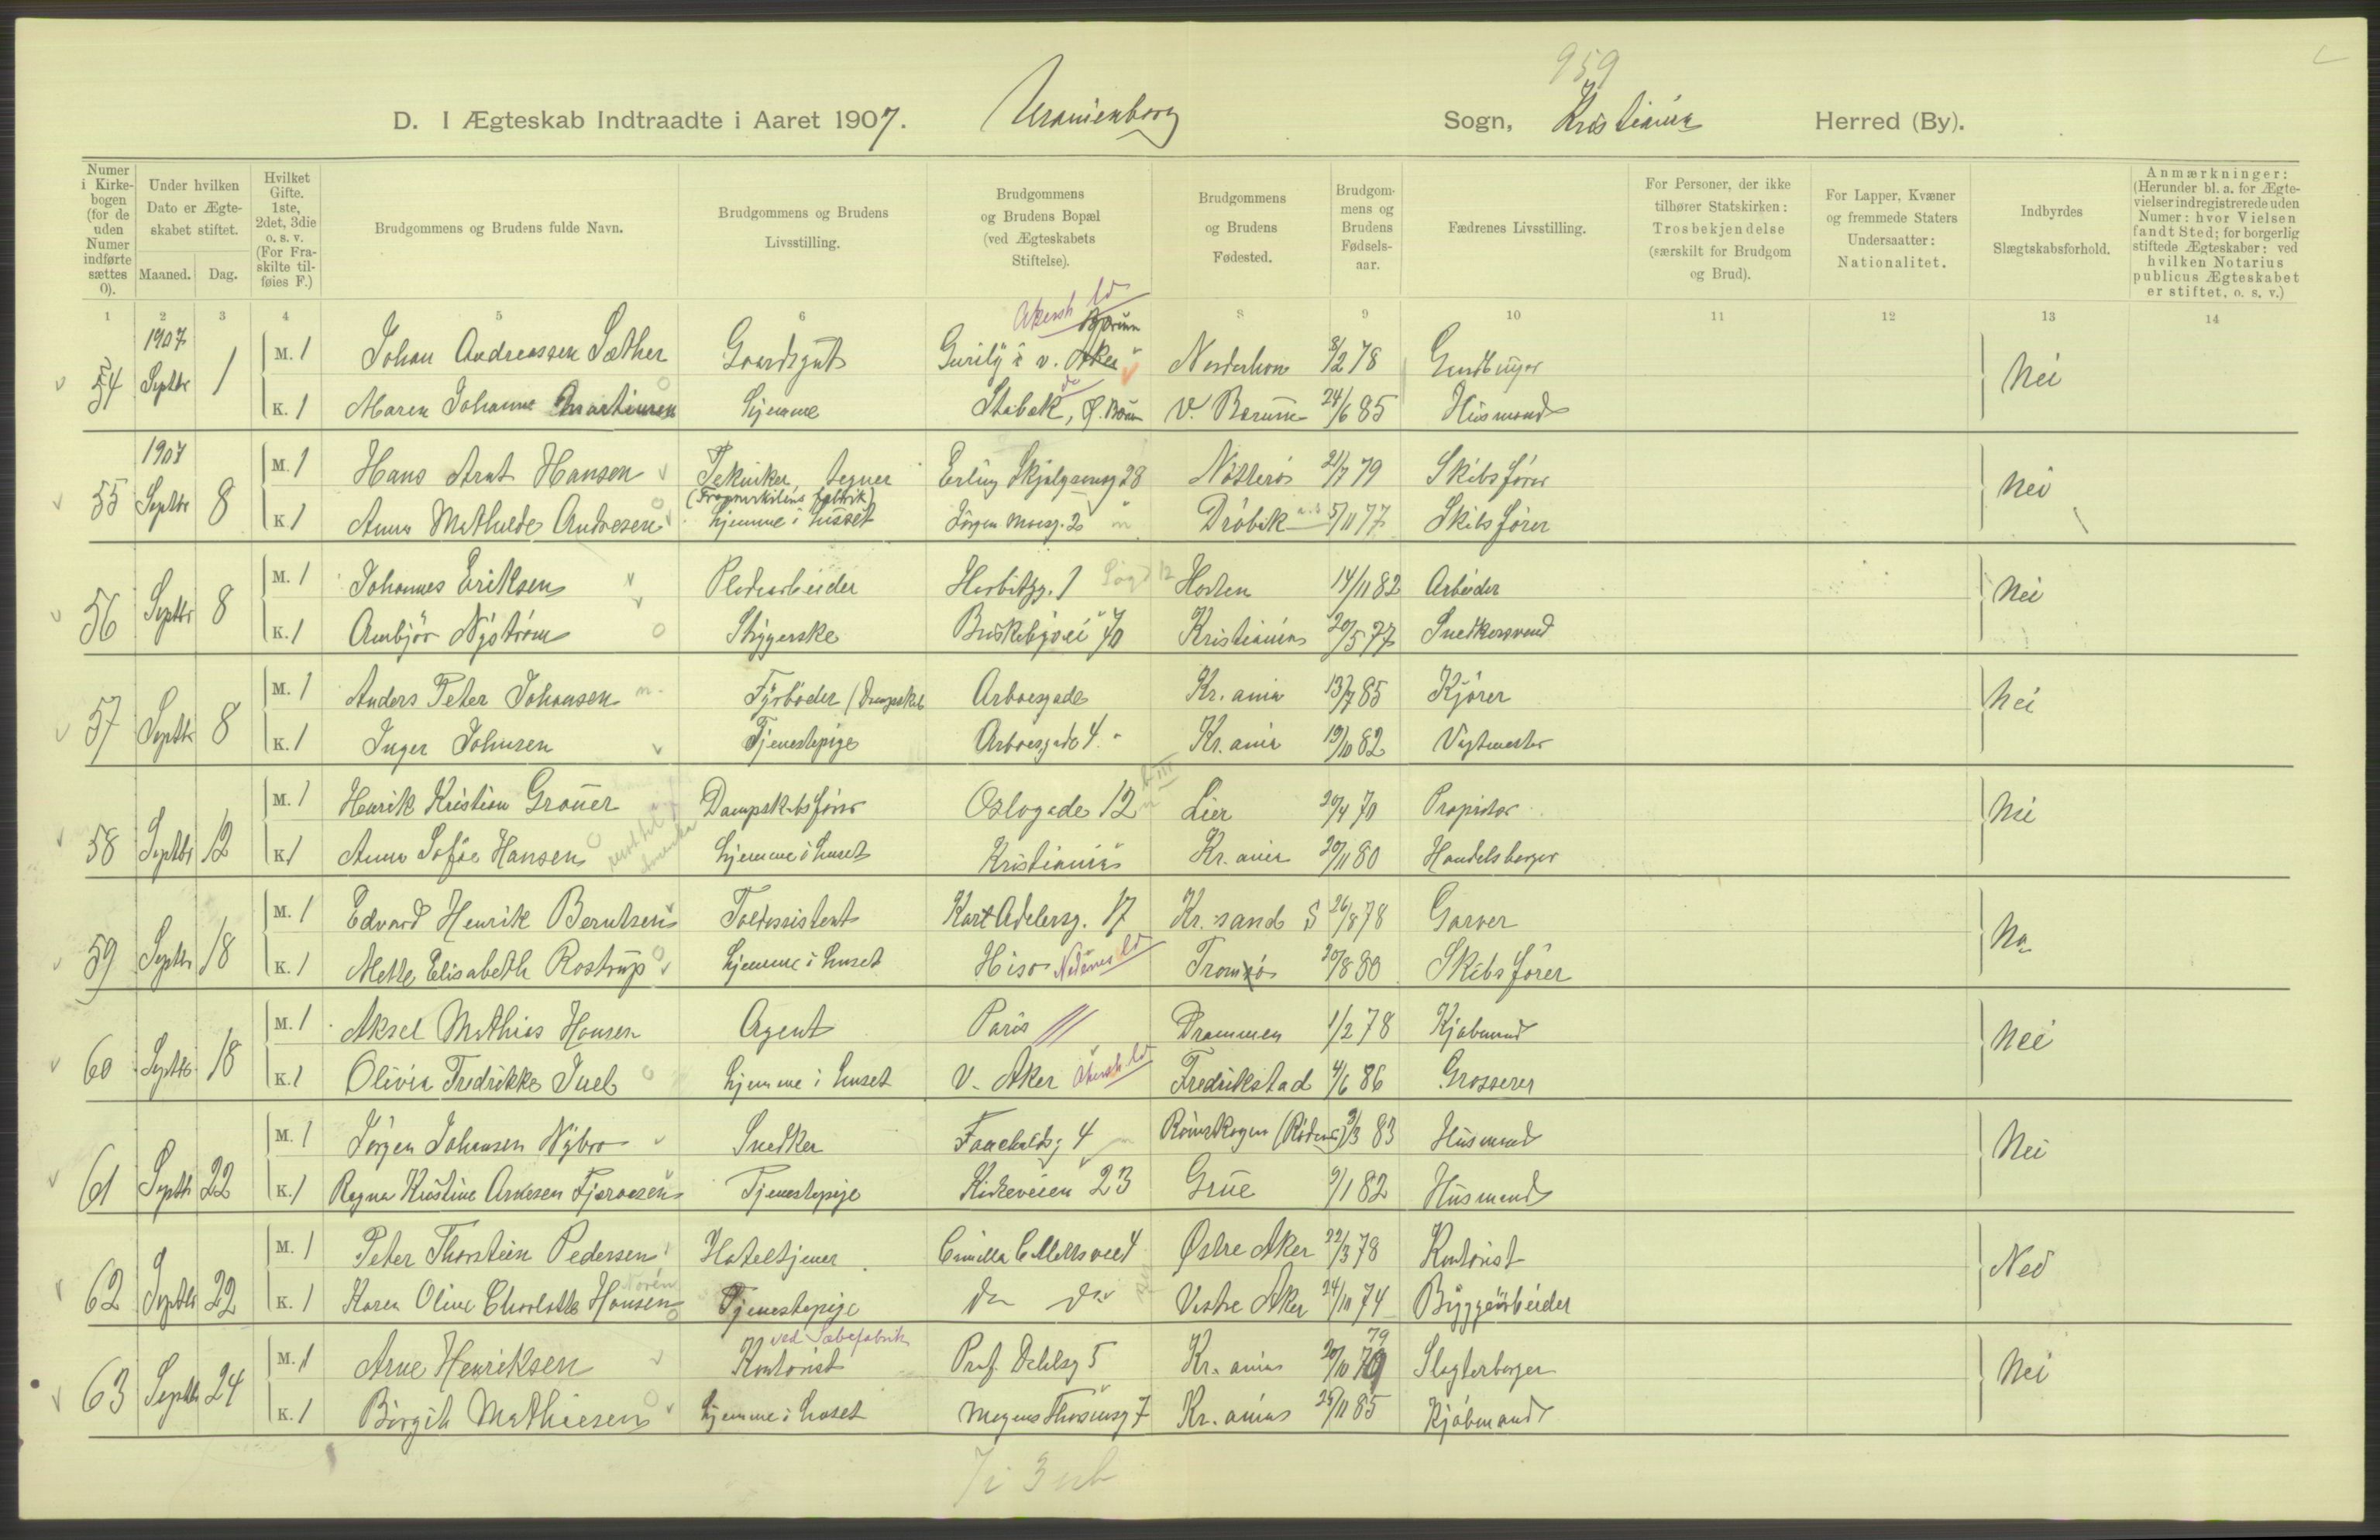 959
D. I Ægteskab Indtraadte i Aaret 1907. Uranienborg Sogn, Kristiania Herred (By).
Numer i Kirkebogen (for de uden Numer indførte sættes 0).
Under hvilken Dato er Ægteskabet stiftet.
Maaned. Dag.
Hvilket Gifte. 1ste, 2det, 3die o. s. v. (For Fraskilte tilføies F.)
Brudgommens og Brudens fulde Navn.
Brudgommens og Brudens Livsstilling.
Brudgommens og Brudens Bopæl (ved Ægteskabets Stiftelse).
Brudgommens og Brudens Fødested.
Brudgommens og Brudens Fødselsaar.
Fædrenes Livsstilling.
For Personer, der ikke tilhører Statskirken: Trosbekjendelse (særskilt for Brudgom og Brud).
For Lapper, Kvæner og fremmede Staters Undersaatter: Nationalitet.
Indbyrdes Slægtskabsforhold.
Anmærkninger: (Herunder bl. a. for Ægtevielser indregistrerede uden Numer: hvor Vielsen fandt Sted; for borgerlig stiftede Ægteskaber: ved hvilken Notarius publicus Ægteskabet er stiftet, o. s. v.)
1 2 3 4 5 6 8 9 10 11 12 13 14
Akersh ld
Bærum
54 1907 Septbr 1 M. 1 Johan Andreassen Sæther Gaardsgut v. Aker Norderhov 8/2 78 Gaardbruger Nei
K. 1 Maren Johanne Martinsen hjemme Stabæk, V. Bærum 24/6 85 Husmand
55 1907 Septbr 8 M. 1 Hans Arnt Hansen Tekniker, tegner Erling Skjalgsønsg 28 Nøtterø 21/7 79 Skibsfører Nei
K. 1 Anna Mathilde Andresen hjemme i huset Jørgen Moesg. 2 Drøbak 5/11 77 Skibsfører
56 Septbr 8 M. 1 Johannes Eriksen Pladearbeider Herbitzg. 1 Horten 14/11 82 Arbeider Nei
K. 1 Annbjør Nyström Strygerske Briskebyvei 70 Kristiania 20/5 77 Snedkersvend
57 Septbr 8 M. 1 Anders Peter Johansen Fyrbøder (Dampskib Arboesgade Kr.ania 13/7 85 Kjører Nei
K. 1 Inger Johnsen Tjenestepige Arboesgade 4. Kr.ania 19/10 82 Vagtmester
58 Septbr 12 M. 1 Henrik Kristian Grøner Dampskibsfører Oslogade 12 Lier 20/4 70 Proprietær Nei
K. 1 Anna Sofie Hansen hjemme i huset Kristiania Kr.ania 20/11 80 Handelsborger
59 Septbr 18 M. 1 Edvard Henrik Berntsen Toldassistent Kort Adelersg. 17 Kr.sand S 26/8 78 Garver Nei
K. 1 Mette Elisabeth Rostrup hjemme i huset Hisø Nedenes ld Tromsø 20/8 80 Skibsfører
60 Septbr 18 M. 1 Aksel Mathias Hansen Agent Paris Drammen 1/2 78 Kjøbmand Nei
K. 1 Olivia Fredrikke Juel hjemme i huset V. Aker Akersh. ld Fredrikstad 4/6 86 Grosserer
61 Septbr 22 M. 1 Jørgen Johansen Nybro Snedker Fauchaldsg 4 Rømskogen (Rødenes) 3/3 83 Husmand Nei
K. 1 Ragna Kristine Arnesen Tjenestepige Kirkeveien 23 Grue 9/1 82 Husmand
62 Septbr 22 M. 1 Peter Thorstein Pedersen Hoteltjener Camilla Colletts vei 4 Østre Aker 22/3 78 Kontorist Nei
Norén
K. 1 Karen Oline Charlotte Hansen Tjenestepige do do Vestre Aker 24/10 74 Byggearbeider
ved Sæbefabrik 79
63 Septbr 24 M. 1 Arne Henriksen Kontorist Prof. Dahlsg 5 Kr.ania 20/10 79 Slagterborger Nei
K. 1 Birgit Mathiesen hjemme i huset Mogens Thorsensg 7 Kr.ania 25/11 85 Kjøbmand